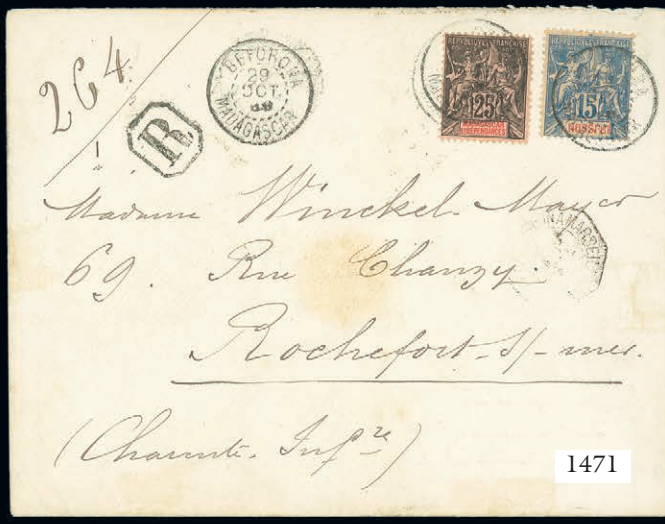 264
R
BEFORONA
29
OCT.
MADAGASCAR
REPUBLIQUE FRANÇAISE
25
MADAGASCAR
ET DÉPENDANCES
REPUBLIQUE FRANÇAISE
15
Madame Winckel-Mayer
69. Rue Chanzy.
Rochefort-s/-mer.
(Charente-Infre)
1471